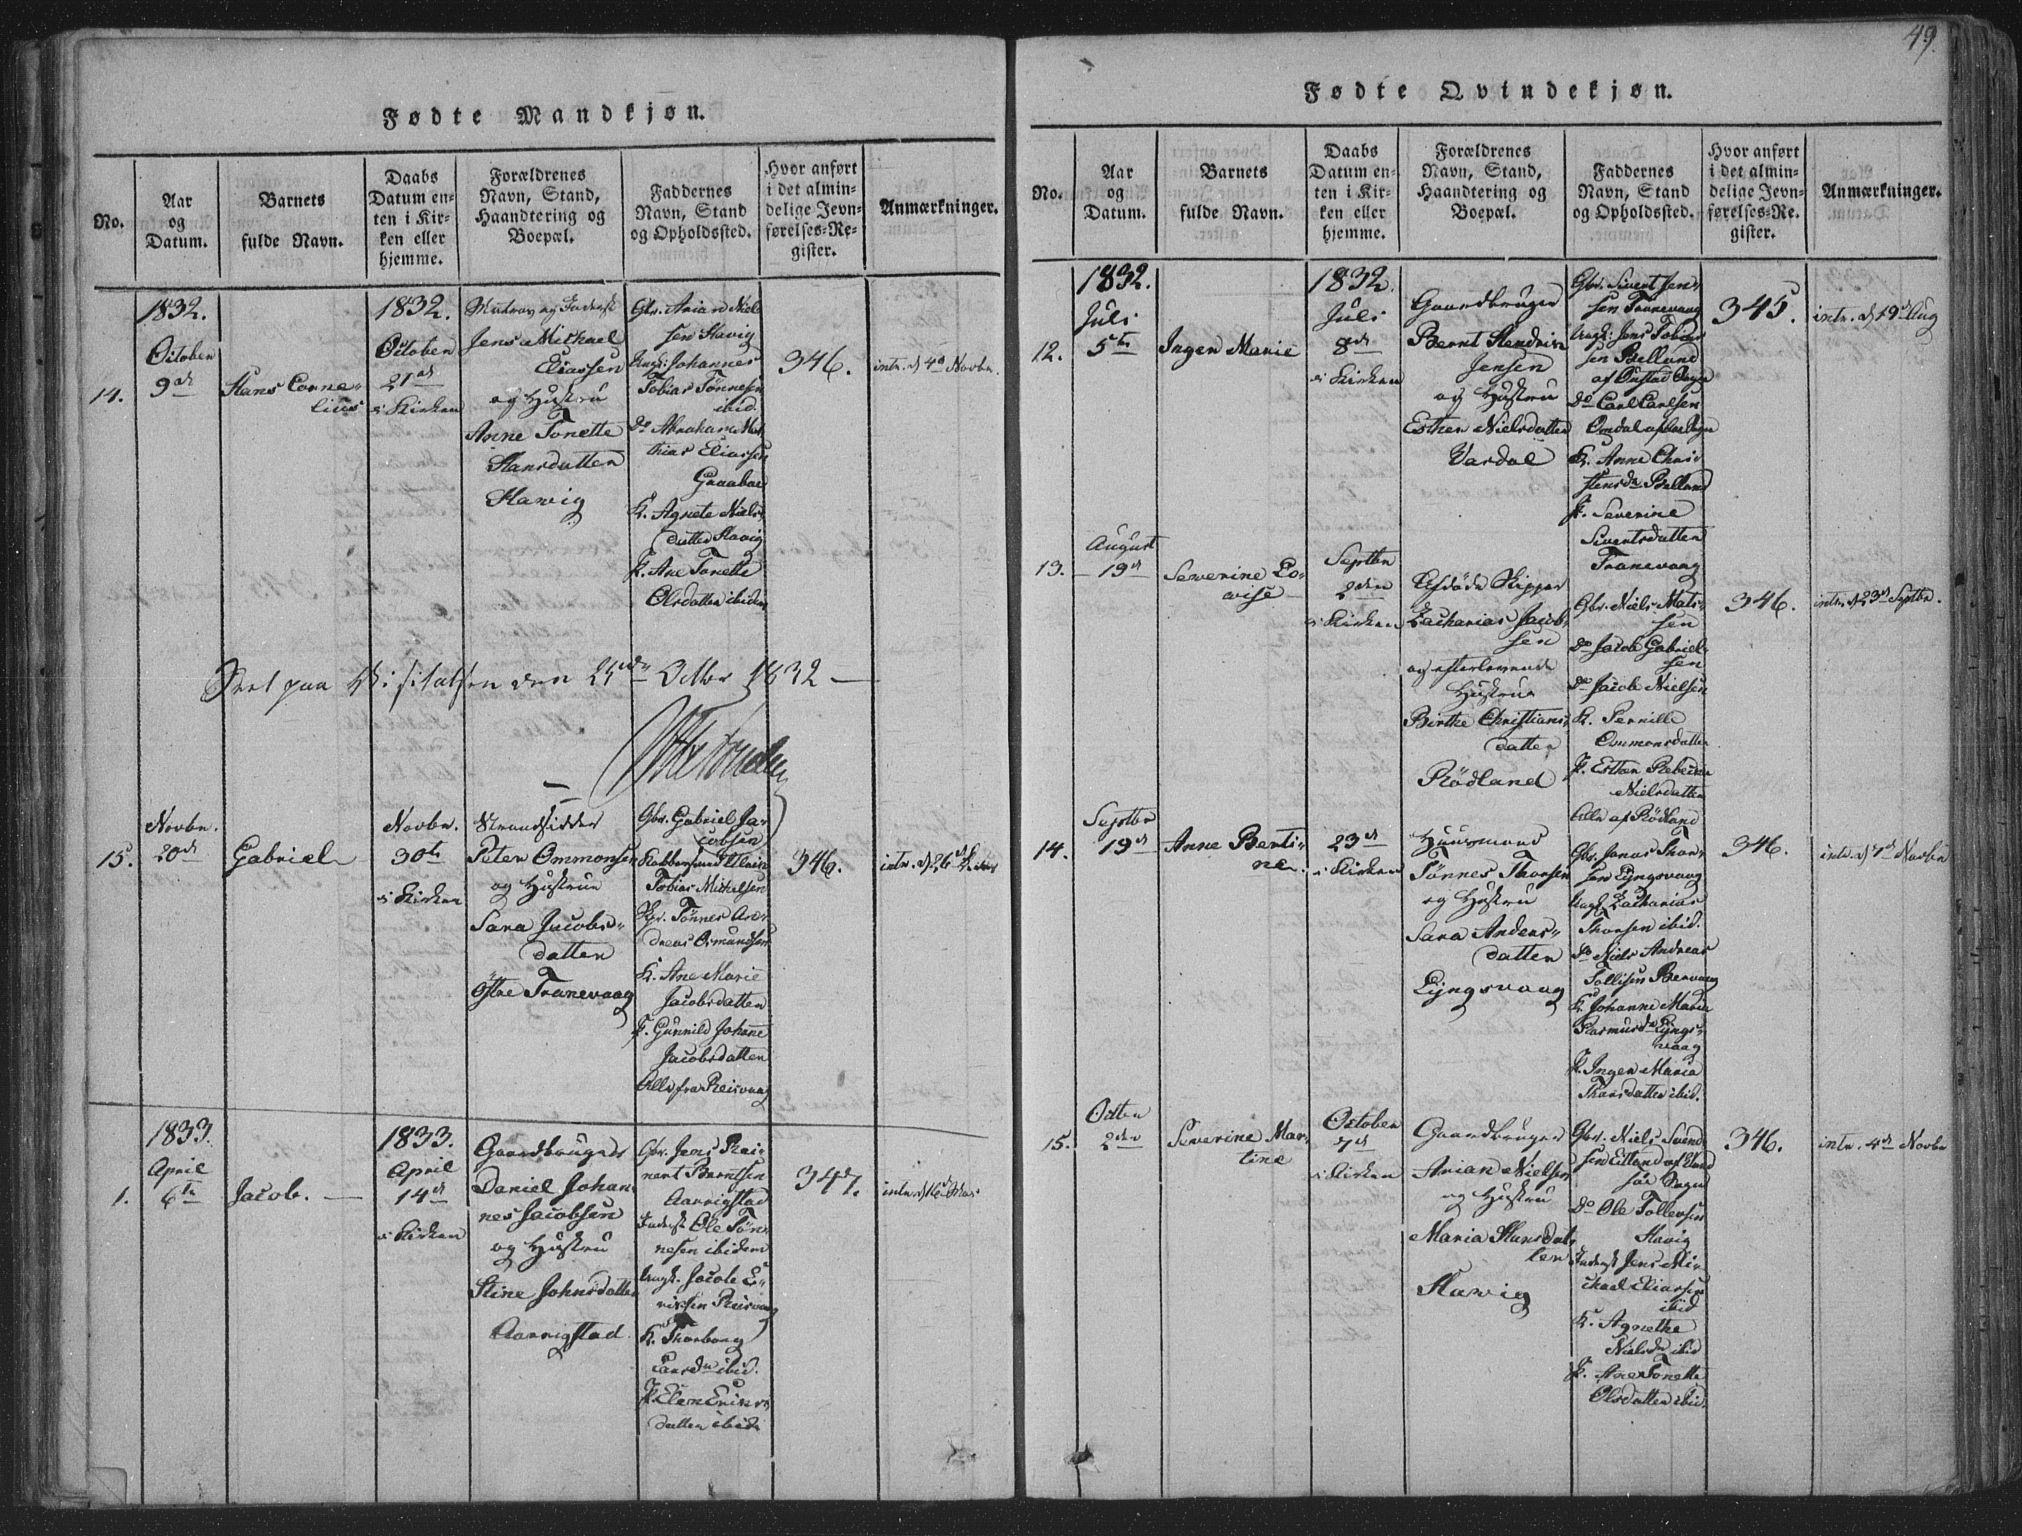 49.
Fødte Mandkjøn.
No.
Aar og Datum.
Barnets fulde Navn.
Daabs Datum enten i Kirken eller hjemme.
Forældrenes Navn, Stand, Haandtering og Boepæl.
Faddernes Navn, Stand og Opholdssted.
Hvor anført i det almindelige Jevnførelses-Register.
Anmærkninger.
14.
1832.
October
9de
Hans Corne-
lius
1832.
October
21de
i Kirken
Jens Michael
Eliassen
og Hustru
Anne Tonette
Hansdatter
Hawig
Gbr. Arian Niel-
sen Havig
Ungk. Johannes
Tobias Tönnesen
ibid.
do Abraham Mat-
thias Eliassen
K. Agnete Niels-
datter Havig
P. Ane Tonette
Olsdatter ibidem
346.
intr. d 4de Novbr.
Seet paa Visitatsen den 25de Octbr 1832
15.
Novbr.
20de
Gabriel
Novbr.
30te
i Kirken
Strandsidder
Peter Ommonsen
og Hustrue
Sara Jacobs-
datter
Östre Tranevaag
Gbr. Gabriel Ja-
cobsen
Tobias Michelsen
Tönnes An-
dreas Osmundsen
K. Ane Marie
Jacobsdatter
P. Gunnild Johanne
Jacobsdatter
Alle fra Reisvaag
346.
intr. d 26de
1.
1833.
April
6te
Jacob.
1833.
April
14de
i Kirken
Gaardbruger
Daniel Johan-
nes Jacobsen
og Hustru
Stine Johnsdatter
Aarrigstad
Gbr. Jens Rei-
nert Berntsen
Aarrigstad
Inderst Ole Tön-
nesen ibidem
Ungk. Jacob E-
ricksen Reisvaag
K. Thorborg
Larsdr ibid.
P. Elen Erics-
datter ibid.
347.
intr. d 16de Mai
Fødte Qvindekjøn.
No.
Aar og Datum.
Barnets fulde Navn.
Daabs Datum enten i Kirken eller hjemme.
Forældrenes Navn, Stand, Haandtering og Boepæl.
Faddernes Navn, Stand og Opholdssted.
Hvor anført i det almindelige Jevnførelses-Register.
Anmærkninger.
12.
1832.
Juli
5te
Inger Marie
1832.
Juli
8de
i Kirken
Gaardbruger
Bernt Hendrik
Jensen
og Hustru
Esther Nielsdatter
Vardal
Gbr. Sivert Jen-
sen Tranevaag
Ungk. Jens Tobias-
sen Belland
do Carl Carlsen
Omdal
K. Anne Chri-
stensdr Belland
P. Severine
Sivertsdatter
Tranevaag
345.
intr. d 19de Aug
13.
August
19de
Severine Lo-
vise
Septbr
2den
i Kirken
Afdöde Skipper
Zacharias Jacob-
sen
og efterlevende
Hustrue
Birthe Christians-
datter
Rödland
Gbr. Niels Mati-
sen
do Jacob Gabriel-
sen
do Jacob Nielsen
K. Pernille
Ommonsdatter
P. Esther Rebecca
Nielsdatter
Alle af Rödland
346.
intr. d 23de Septbr.
14.
Septbr
19de
Anne Berti-
ne.
23de
i Kirken
Huusmand
Tönnes Thorsen
og Hustru
Sara Anders-
datter
Lyngsvaag
Gbr. Jonas Thor-
sen Lyngsvaag
Ungk. Zacharias
Thorsen ibid.
do Niels Andreas
Tollisen Bervaag
K. Johanne Maria
Rasmusdr Lyngs-
vaag
P. Inger Maria
Thorsdatter ibid.
346.
intr. d 4de Novbr
15.
Octbr
2den
Severine Mar-
tine
October
7de
i Kirken
Gaardbruger
Arian Nielsen
og Hustru
Maria Hansdat-
ter
Hawig
Gbr. Niels Svend-
sen Eitland
do Ole Tollevsen
Havig
Inderst Jens Mi-
chael Eliassen
ibid
K. Agnethe
Nielsdr ibid
P. Ane Tonette
Olsdatter ibid.
346.
intr. 4de Novbr